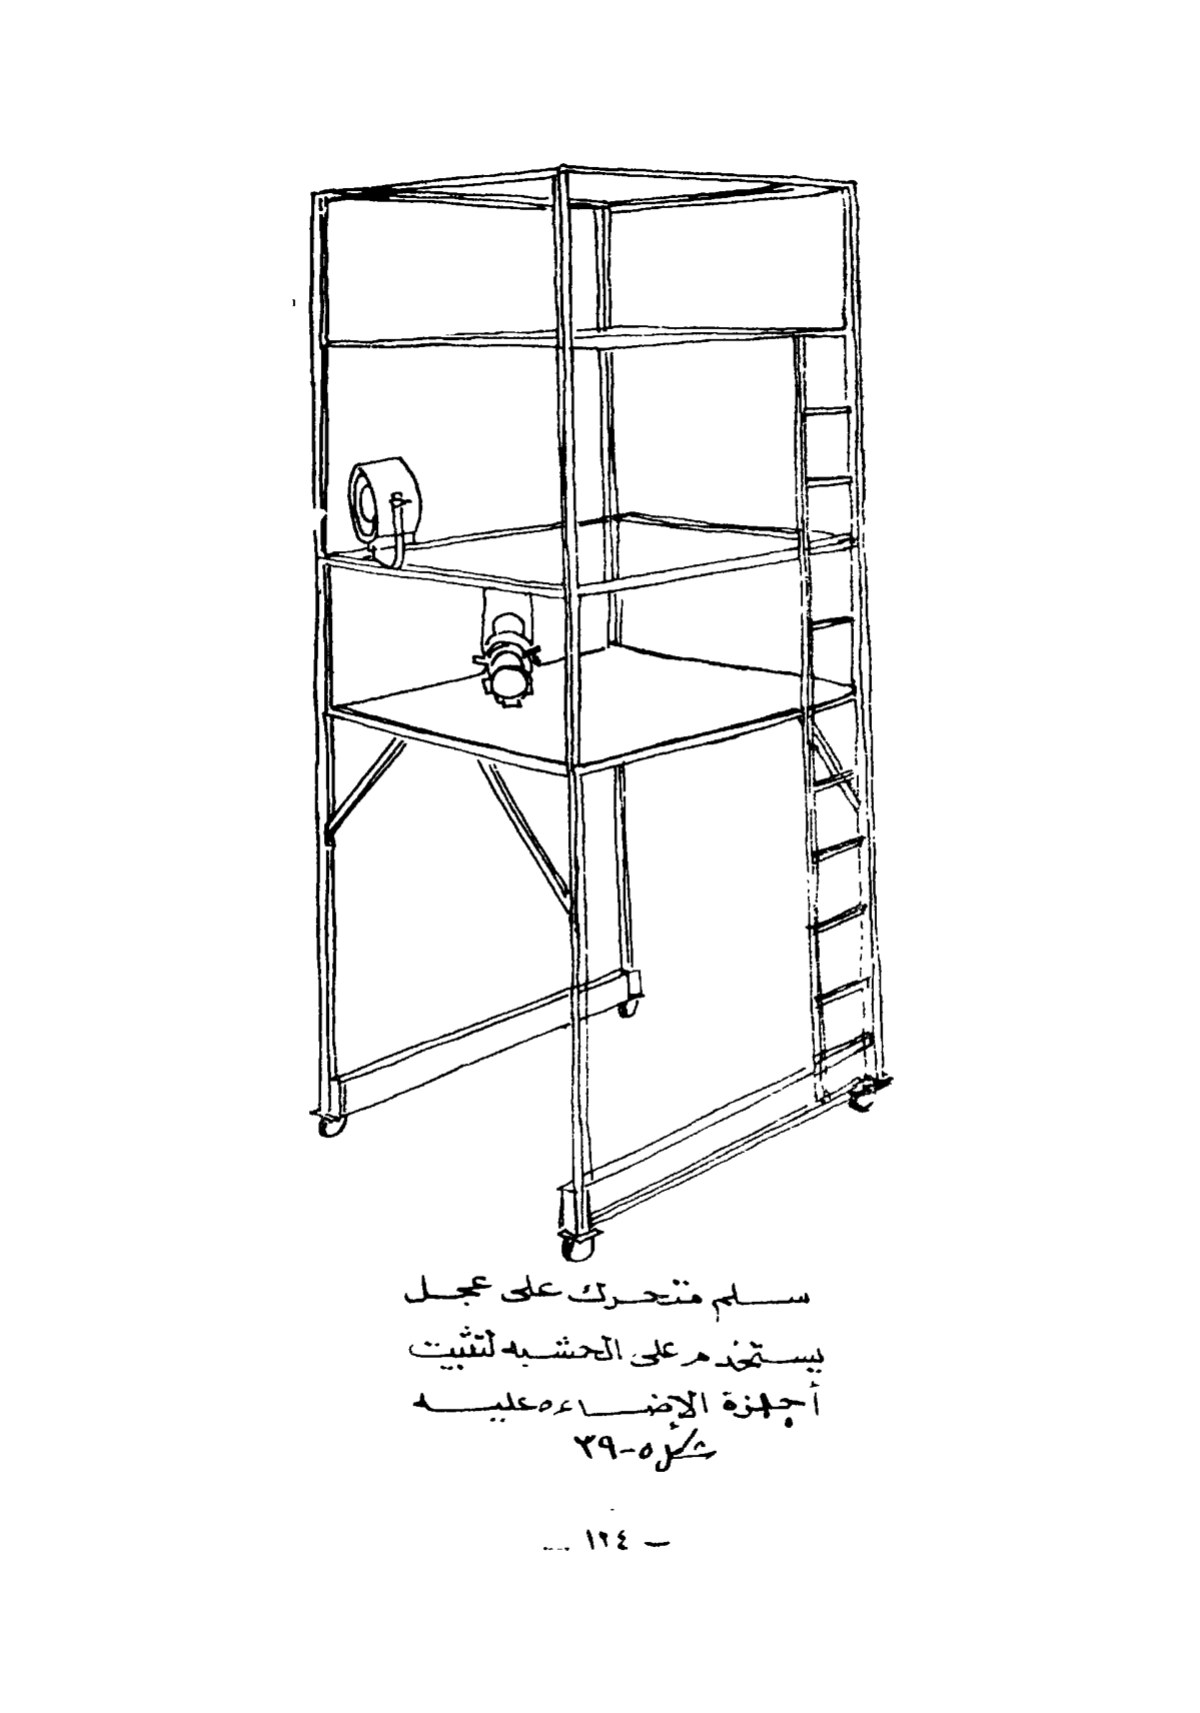 سلم متحرك على عجل
يستخدم على الخشبه لتثبيت
أجهزة الإضاءه عليه
شكل ٥-٣٩
— ١٢٤ —